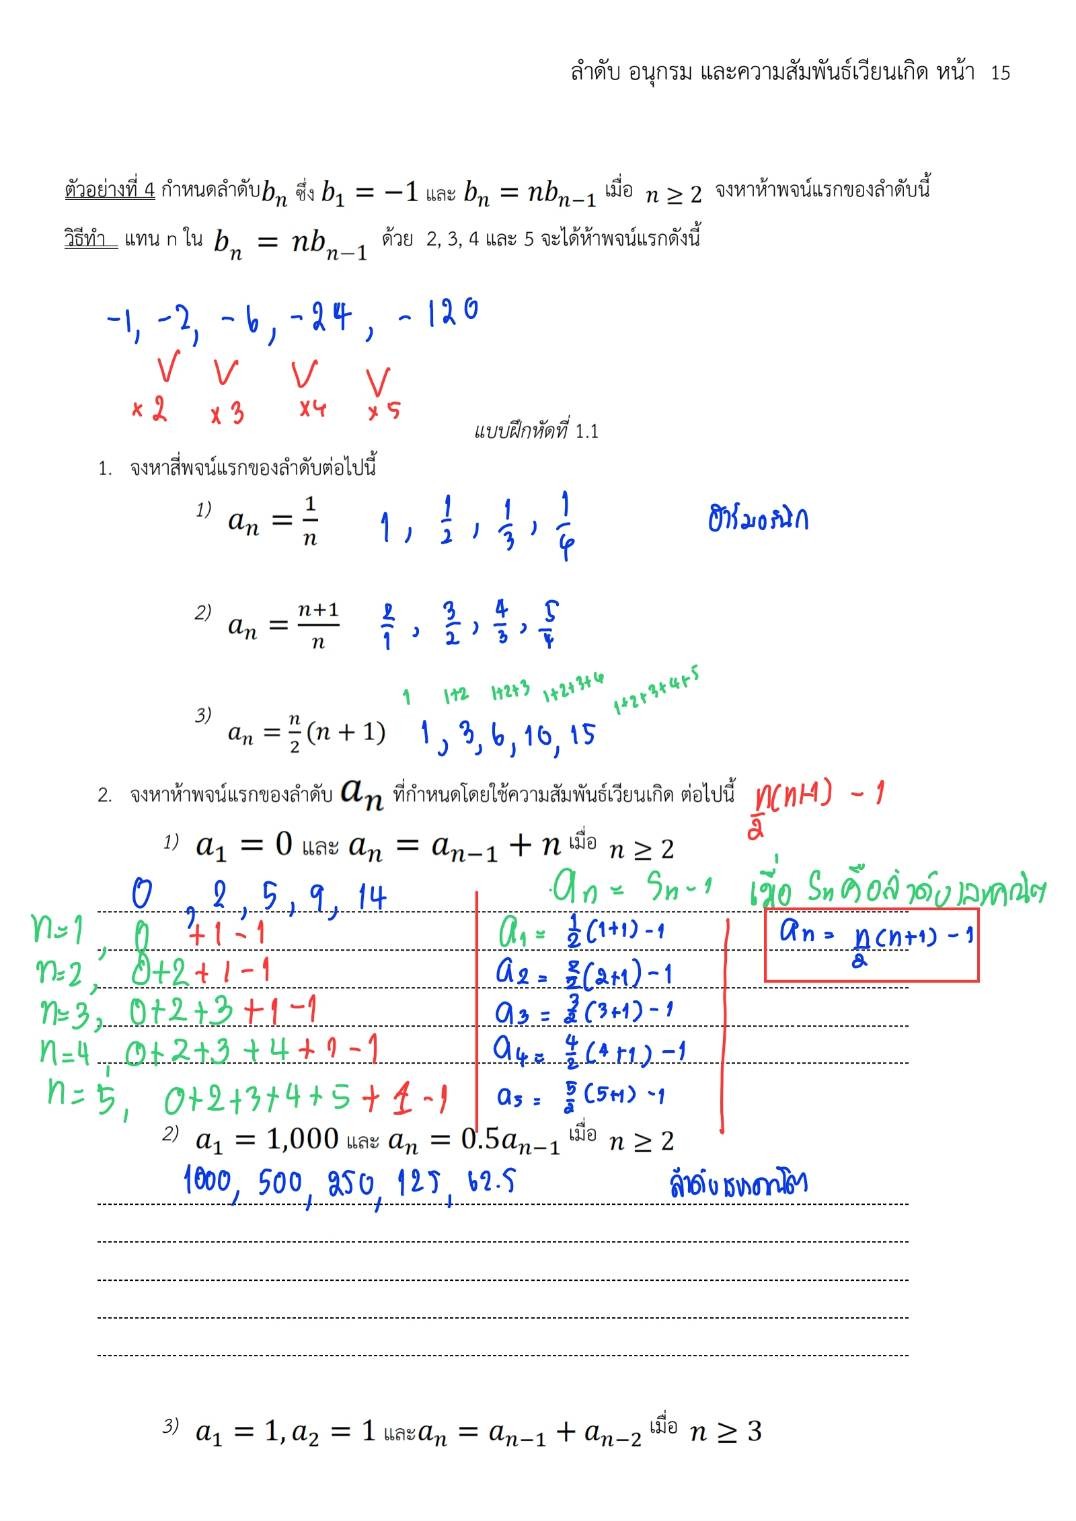 ลำดับ อนุกรม และความสัมพันธ์เวียนเกิด หน้า 15
ตัวอย่างที่ 4 กำหนดลำดับ bₙ ซึ่ง b₁ = −1 และ bₙ = nbₙ₋₁ เมื่อ n ≥ 2 จงหาห้าพจน์แรกของลำดับนี้
วิธีทำ แทน n ใน bₙ = nbₙ₋₁ ด้วย 2, 3, 4 และ 5 จะได้ห้าพจน์แรกดังนี้
-1, -2, -6, -24, -120
×2 ×3 ×4 ×5
แบบฝึกหัดที่ 1.1
1. จงหาสี่พจน์แรกของลำดับต่อไปนี้
1) aₙ = 1/n 1, 1/2, 1/3, 1/4 ฮาร์มอนิก
2) aₙ = (n+1)/n 2/1, 3/2, 4/3, 5/4
1 1+2 1+2+3 1+2+3+4 1+2+3+4+5
3) aₙ = n/2 (n + 1) 1, 3, 6, 10, 15
2. จงหาห้าพจน์แรกของลำดับ aₙ ที่กำหนดโดยใช้ความสัมพันธ์เวียนเกิด ต่อไปนี้ n/2 (n+1) - 1
1) a₁ = 0 และ aₙ = aₙ₋₁ + n เมื่อ n ≥ 2
0, 2, 5, 9, 14 aₙ = Sₙ - 1 เมื่อ Sₙ คือลำดับเลขคณิต
n=1, 0 +1-1 a₁ = 1/2 (1+1) - 1 aₙ = n/2 (n+1) - 1
n=2, 0+2+1-1 a₂ = 2/2 (2+1) - 1
n=3, 0+2+3+1-1 a₃ = 3/2 (3+1) - 1
n=4, 0+2+3+4+1-1 a₄ = 4/2 (4+1) - 1
n=5, 0+2+3+4+5+1-1 a₅ = 5/2 (5+1) - 1
2) a₁ = 1,000 และ aₙ = 0.5aₙ₋₁ เมื่อ n ≥ 2
1000, 500, 250, 125, 62.5 ลำดับเรขาคณิต
3) a₁ = 1, a₂ = 1 และ aₙ = aₙ₋₁ + aₙ₋₂ เมื่อ n ≥ 3